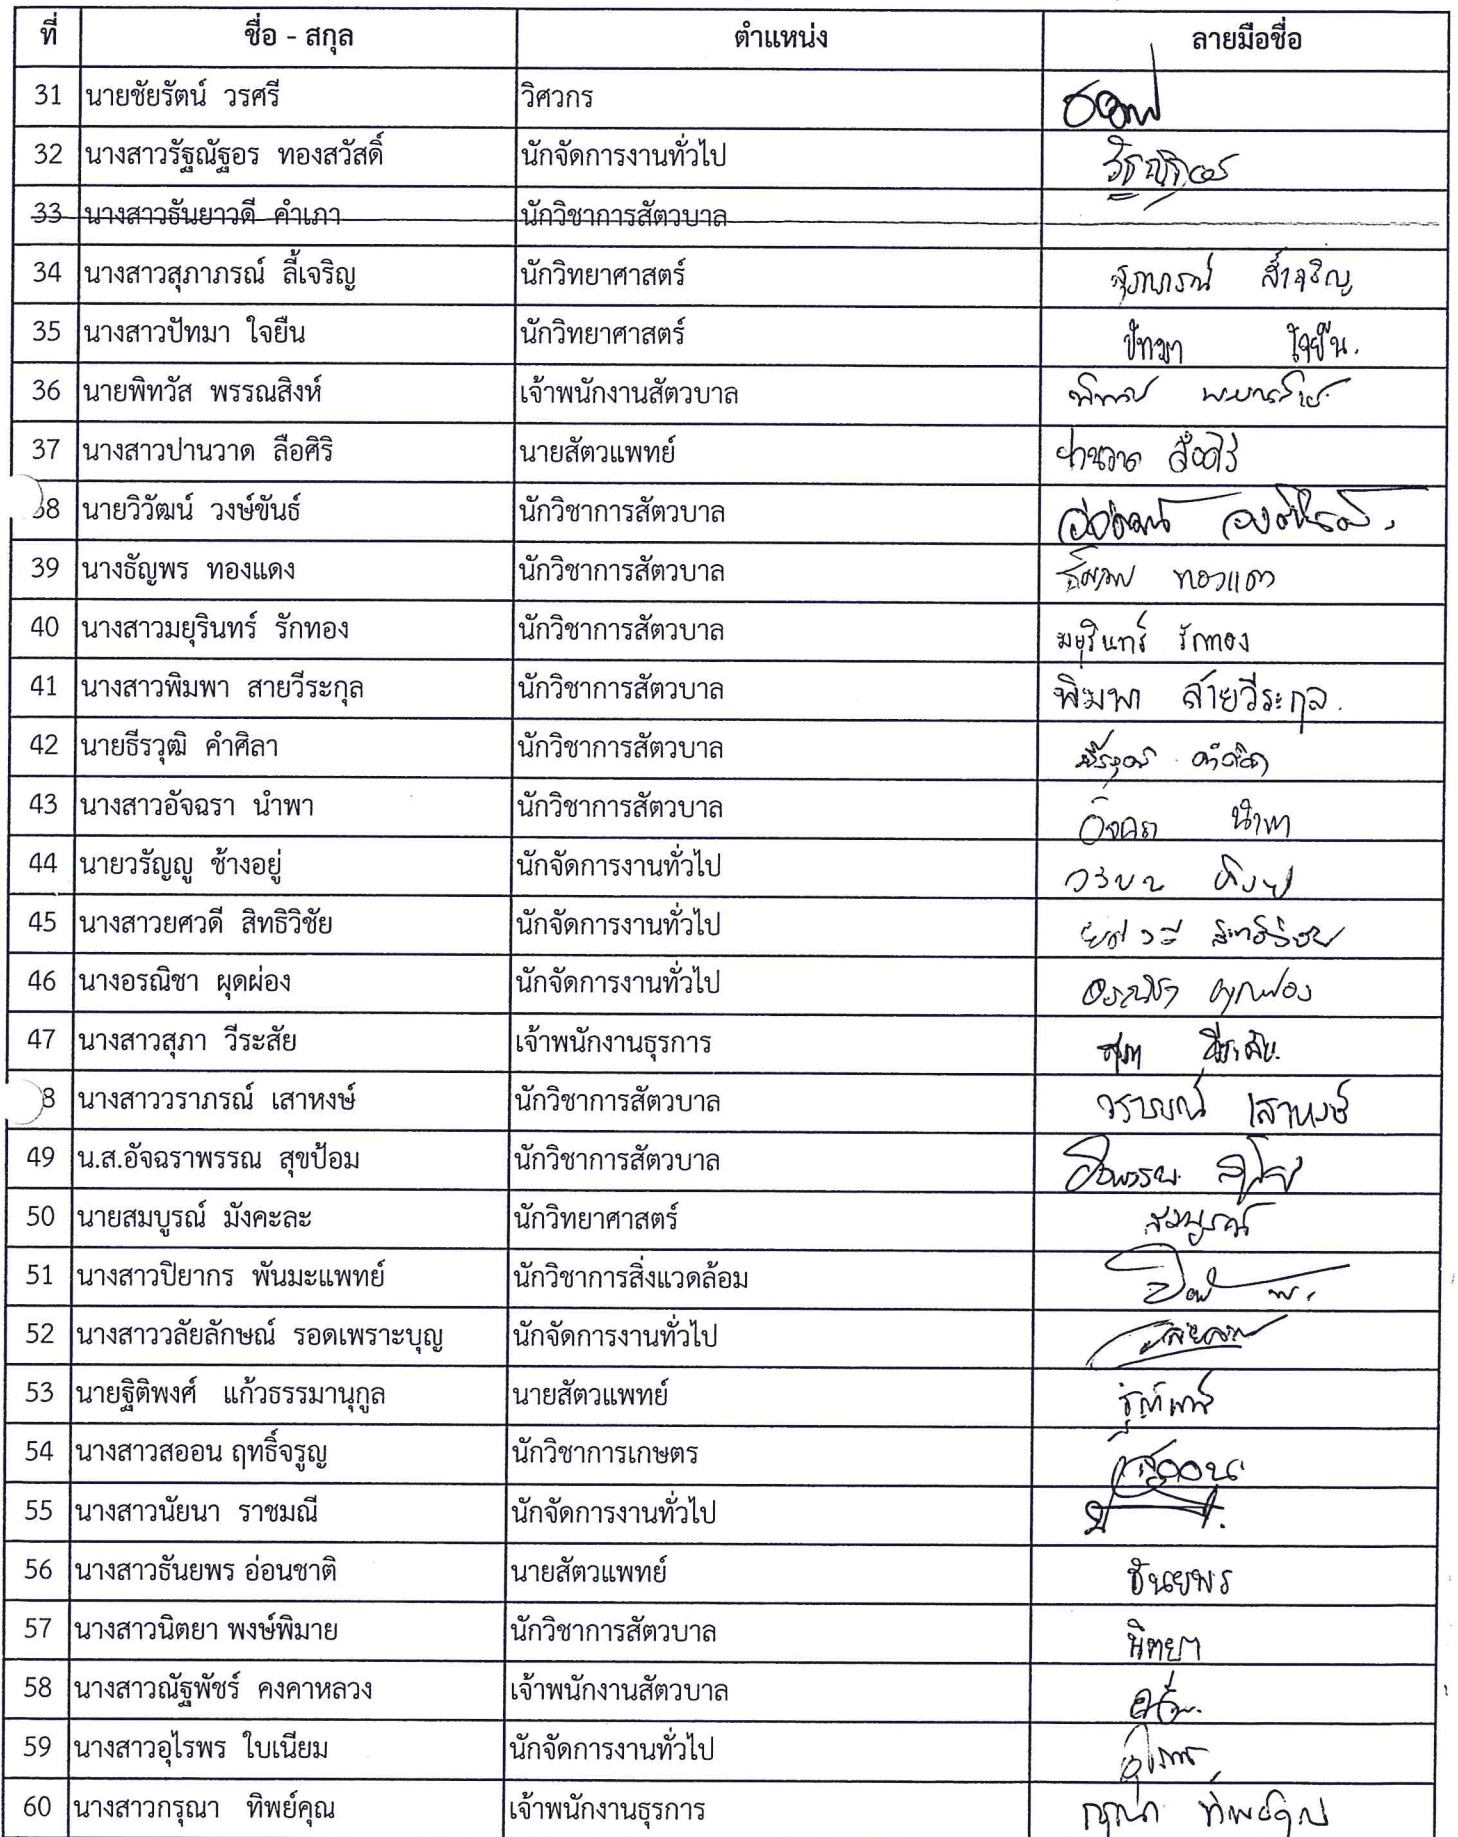 ที่ ชื่อ - สกุล ตำแหน่ง ลายมือชื่อ
31 นายชัยรัตน์ วรศรี วิศวกร
32 นางสาวรัฐณัฐอร ทองสวัสดิ์ นักจัดการงานทั่วไป
33 นางสาวธันยาวดี คำเภา นักวิชาการสัตวบาล
34 นางสาวสุภาภรณ์ ลี้เจริญ นักวิทยาศาสตร์ สุภาภรณ์ ลี้เจริญ
35 นางสาวปัทมา ใจยืน นักวิทยาศาสตร์ ปัทมา ใจยืน.
36 นายพิทวัส พรรณสิงห์ เจ้าพนักงานสัตวบาล
37 นางสาวปานวาด ลือศิริ นายสัตวแพทย์ ปานวาด ลือศิริ
38 นายวิวัฒน์ วงษ์ขันธ์ นักวิชาการสัตวบาล
39 นางธัญพร ทองแดง นักวิชาการสัตวบาล ธัญพร ทองแดง
40 นางสาวมยุรินทร์ รักทอง นักวิชาการสัตวบาล มยุรินทร์ รักทอง
41 นางสาวพิมพา สายวีระกุล นักวิชาการสัตวบาล พิมพา สายวีระกุล.
42 นายธีรวุฒิ คำศิลา นักวิชาการสัตวบาล
43 นางสาวอัจฉรา นำพา นักวิชาการสัตวบาล อัจฉรา นำพา
44 นายวรัญญู ช้างอยู่ นักจัดการงานทั่วไป
45 นางสาวยศวดี สิทธิวิชัย นักจัดการงานทั่วไป ยศวดี สิทธิวิชัย
46 นางอรณิชา ผุดผ่อง นักจัดการงานทั่วไป อรณิชา ผุดผ่อง
47 นางสาวสุภา วีระสัย เจ้าพนักงานธุรการ สุภา วีระสัย.
8 นางสาววราภรณ์ เสาหงษ์ นักวิชาการสัตวบาล วราภรณ์ เสาหงษ์
49 น.ส.อัจฉราพรรณ สุขป้อม นักวิชาการสัตวบาล
50 นายสมบูรณ์ มังคะละ นักวิทยาศาสตร์ สมบูรณ์
51 นางสาวปิยากร พันมะแพทย์ นักวิชาการสิ่งแวดล้อม
52 นางสาววลัยลักษณ์ รอดเพราะบุญ นักจัดการงานทั่วไป
53 นายฐิติพงศ์ แก้วธรรมานุกูล นายสัตวแพทย์
54 นางสาวสออน ฤทธิ์จรูญ นักวิชาการเกษตร สออน
55 นางสาวนัยนา ราชมณี นักจัดการงานทั่วไป
56 นางสาวธันยพร อ่อนชาติ นายสัตวแพทย์ ธันยพร
57 นางสาวนิตยา พงษ์พิมาย นักวิชาการสัตวบาล นิตยา
58 นางสาวณัฐพัชร์ คงคาหลวง เจ้าพนักงานสัตวบาล
59 นางสาวอุไรพร ใบเนียม นักจัดการงานทั่วไป อุไรพร
60 นางสาวกรุณา ทิพย์คุณ เจ้าพนักงานธุรการ กรุณา ทิพย์คุณ